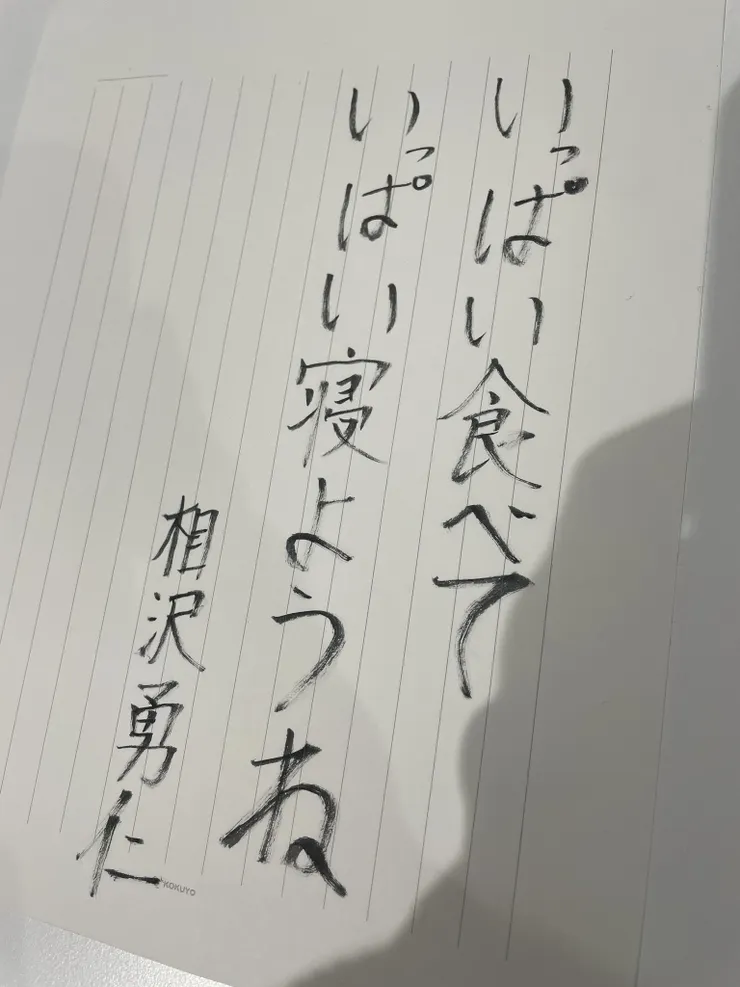 いっぱい食べて
いっぱい寝ようね
相沢勇仁
KOKUYO